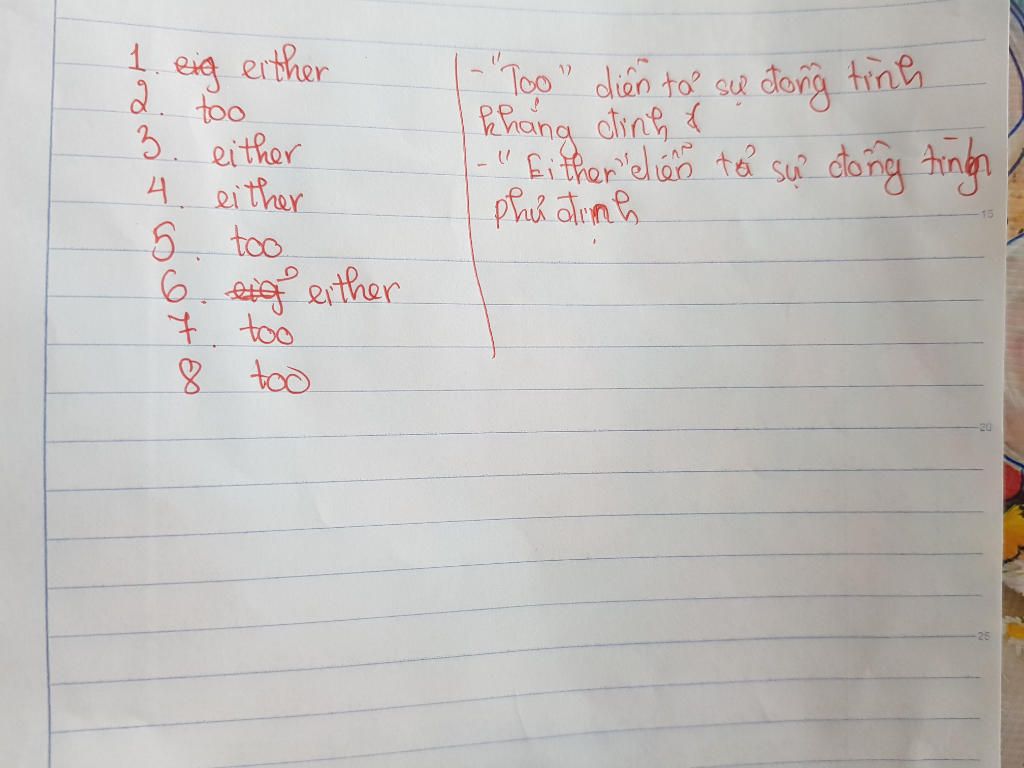 1. eig either
2. too
3. either
4. either
5. too
6. eig either
7. too
8 too
- "Too" diễn tả sự đồng tình
khẳng định
- "Either" diễn tả sự đồng tình
phủ định
15
20
25